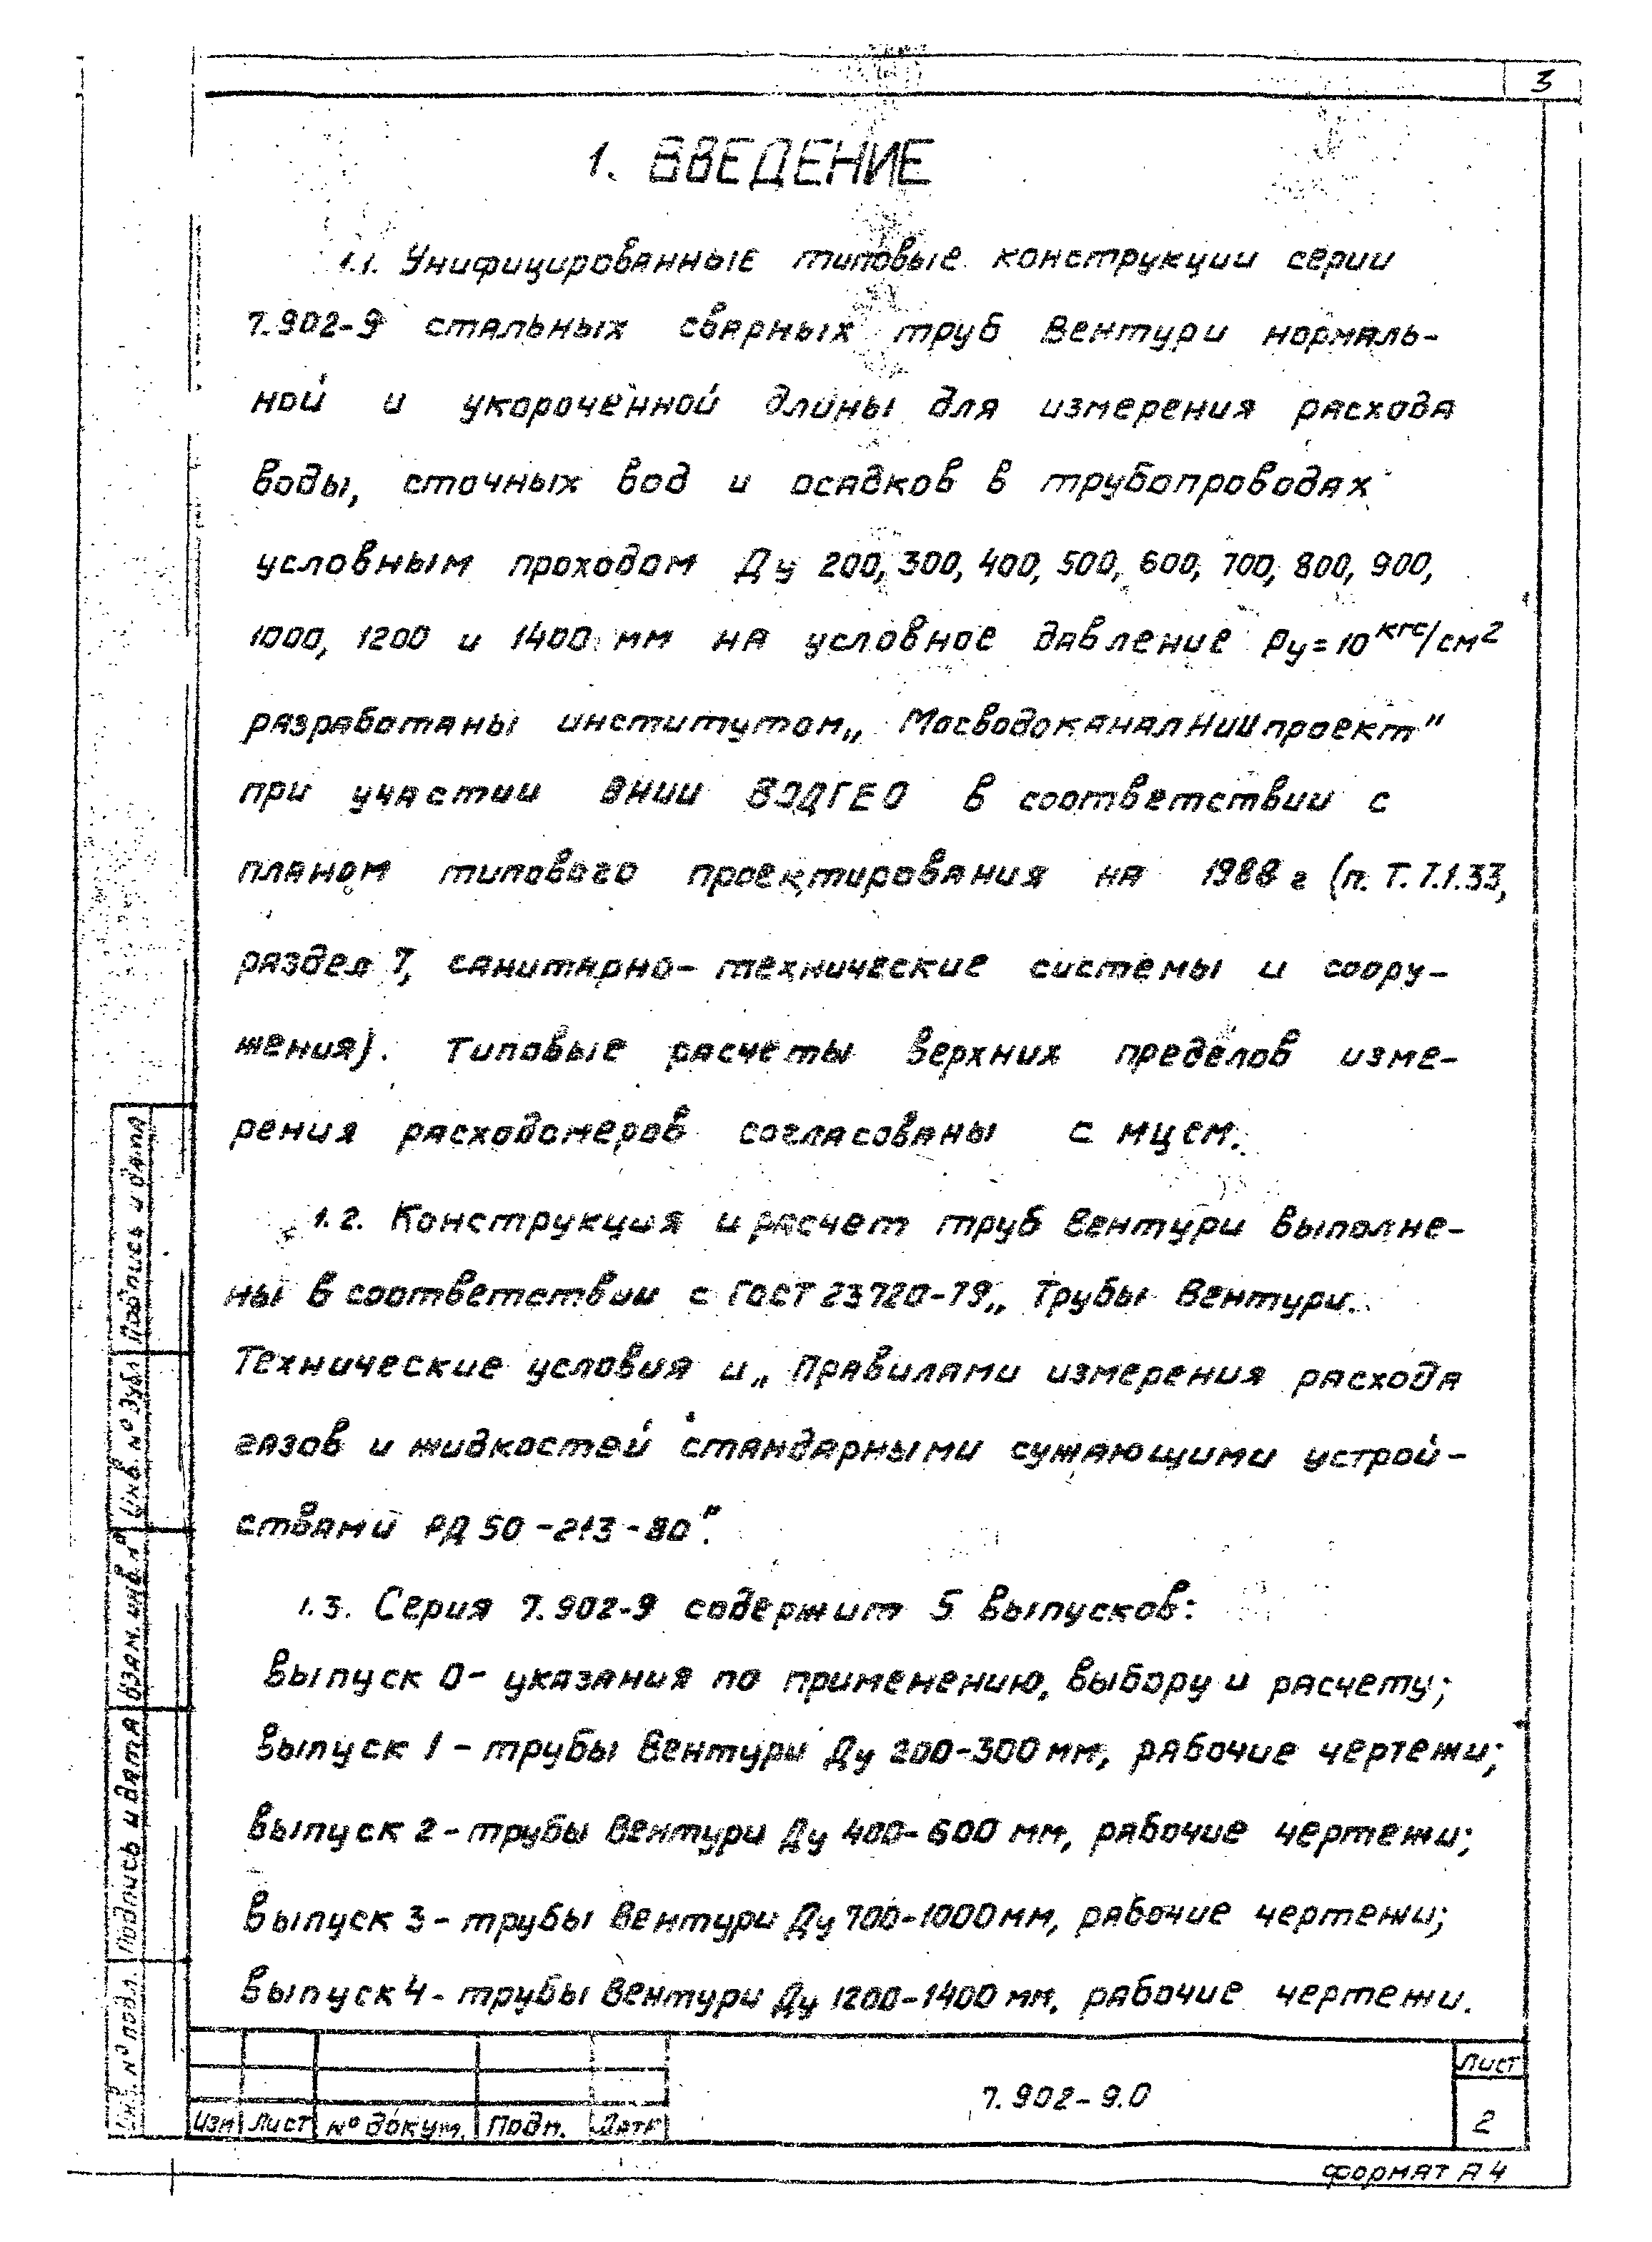 3
1. ВВЕДЕНИЕ
1.1. Унифицированные типовые конструкции серии
7.902-9 стальных сварных труб Вентури нормаль-
ной и укороченной длины для измерения расхода
воды, сточных вод и осадков в трубопроводах
условным проходом Ду 200, 300, 400, 500, 600, 700, 800, 900,
1000, 1200 и 1400 мм на условное давление Ру=10 кгс/см2
разработаны институтом „МосводоканалНИИпроект"
при участии ВНИИ ВОДГЕО в соответствии с
планом типового проектирования на 1988 г (п. Т. 7.1.33,
раздел 7, санитарно-технические системы и соору-
жения). Типовые расчеты верхних пределов изме-
рения расходомеров согласованы с МЦСМ.
1.2. Конструкция и расчет труб Вентури выполне-
ны в соответствии с ГОСТ 23720-79 „Трубы Вентури.
Технические условия и „Правилами измерения расхода
газов и жидкостей стандартными сужающими устрой-
ствами РД 50-213-80".
1.3. Серия 7.902-9 содержит 5 выпусков:
выпуск 0 - указания по применению, выбору и расчету;
выпуск 1 - трубы Вентури Ду 200-300 мм, рабочие чертежи;
выпуск 2 - трубы Вентури Ду 400-600 мм, рабочие чертежи;
выпуск 3 - трубы Вентури Ду 700-1000 мм, рабочие чертежи;
выпуск 4 - трубы Вентури Ду 1200-1400 мм, рабочие чертежи.
Подпись и дата
Инв. № дубл
Взам. инв. №
Подпись и дата
Инв. № подл.
Изм Лист № докум. Подп. Дата
7.902-9.0
Лист
2
Формат А4